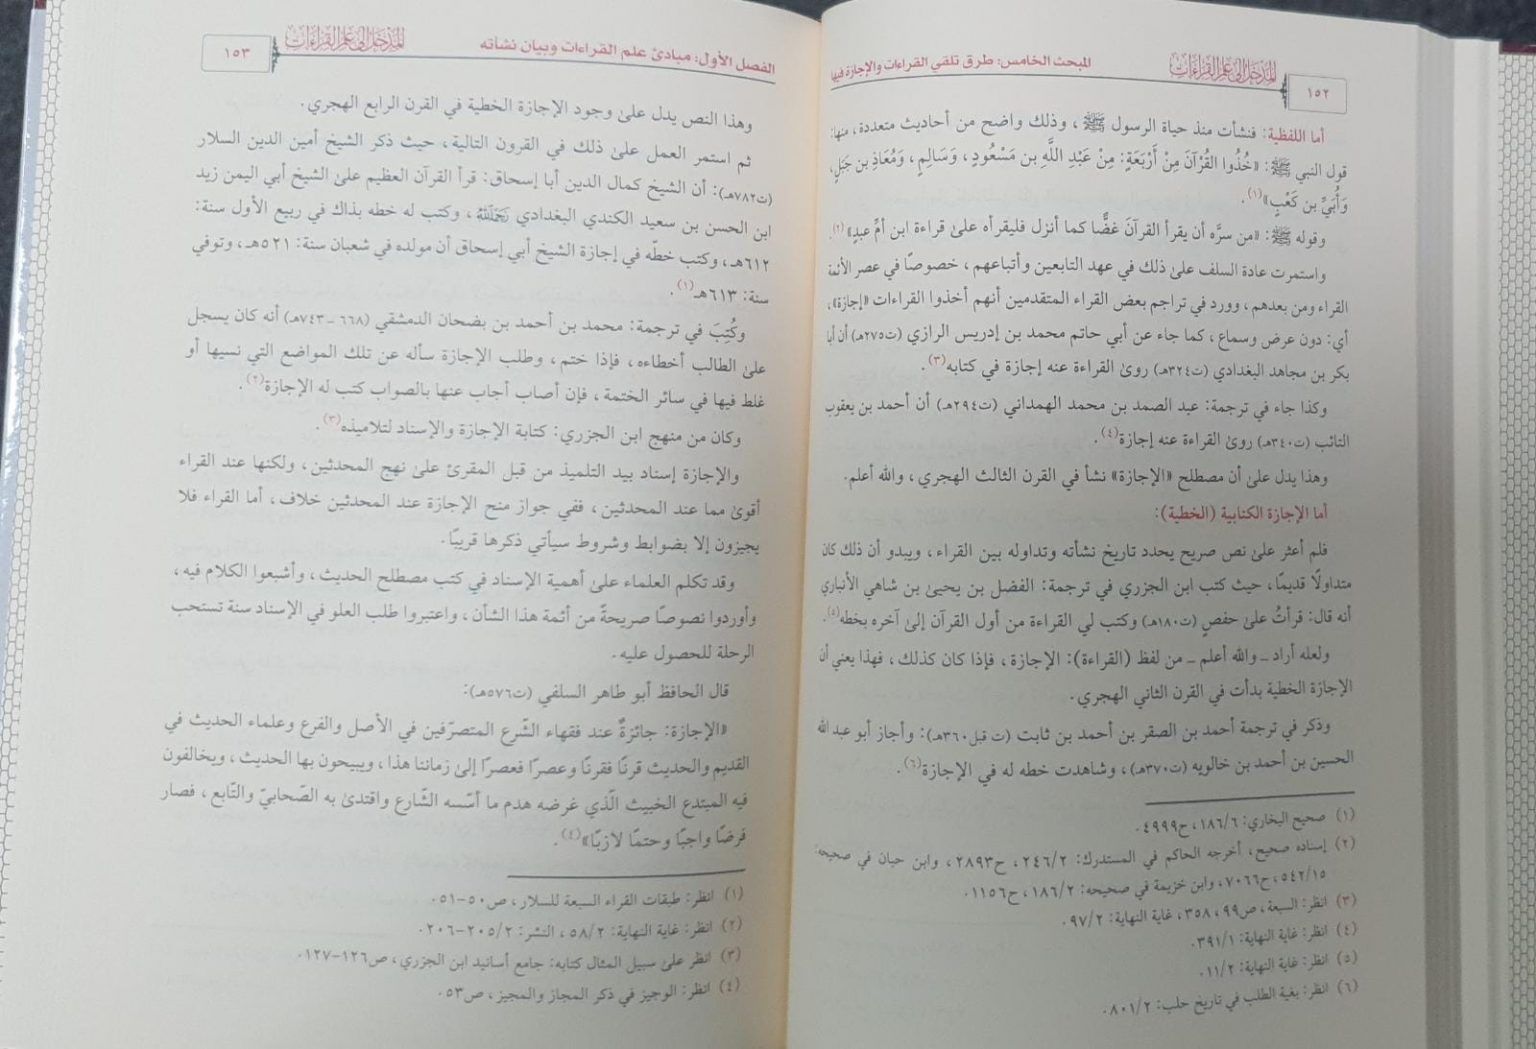 المبحث الخامس: طرق تلقي القراءات والإجازة فيها
المدخل إلى علم القراءات
١٥٢
أما اللفظية: فنشأت منذ حياة الرسول ﷺ، وذلك واضح من أحاديث متعددة، منها:
قول النبي ﷺ: «خُذُوا القُرْآنَ مِنْ أَرْبَعَةٍ: مِنْ عَبْدِ اللَّهِ بن مَسْعُودٍ، وَسَالِمٍ، وَمُعَاذِ بن جَبَلٍ،
وَأُبَيِّ بن كَعْبٍ»(١).
وقوله ﷺ: «من سرَّه أن يقرأ القرآنَ غضًّا كما أنزل فليقرأه علىٰ قراءة ابن أمِّ عبدٍ»(٢).
واستمرت عادة السلف علىٰ ذلك في عهد التابعين وأتباعهم، خصوصًا في عصر الأئمة
القراء ومن بعدهم، وورد في تراجم بعض القراء المتقدمين أنهم أخذوا القراءات «إجازة»،
أي: دون عرض وسماع، كما جاء عن أبي حاتم محمد بن إدريس الرازي (ت٢٧٥هـ) أن أبا
بكر بن مجاهد البغدادي (ت٣٢٤هـ) روىٰ القراءة عنه إجازة في كتابه(٣).
وكذا جاء في ترجمة: عبد الصمد بن محمد الهمداني (ت٢٩٤هـ) أن أحمد بن يعقوب
التائب (ت٣٤٠هـ) روىٰ القراءة عنه إجازة(٤).
وهذا يدل علىٰ أن مصطلح «الإجازة» نشأ في القرن الثالث الهجري، والله أعلم.
أما الإجازة الكتابية (الخطية):
فلم أعثر علىٰ نص صريح يحدد تاريخ نشأته وتداوله بين القراء، ويبدو أن ذلك كان
متداولًا قديمًا، حيث كتب ابن الجزري في ترجمة: الفضل بن يحيىٰ بن شاهي الأنباري
أنه قال: قرأتُ علىٰ حفصٍ (ت١٨٠هـ) وكتب لي القراءة من أول القرآن إلىٰ آخره بخطه(٥).
ولعله أراد ـ والله أعلم ـ من لفظ (القراءة): الإجازة، فإذا كان كذلك، فهذا يعني أن
الإجازة الخطية بدأت في القرن الثاني الهجري.
وذكر في ترجمة أحمد بن الصقر بن أحمد بن ثابت (ت قبل٣٦٠هـ): وأجاز أبو عبد الله
الحسين بن أحمد بن خالويه (ت٣٧٠هـ)، وشاهدت خطه له في الإجازة(٦).
(١) صحيح البخاري: ١٨٦/٦، ح٤٩٩٩.
(٢) إسناده صحيح، أخرجه الحاكم في المستدرك: ٢٤٦/٢، ح٢٨٩٣، وابن حبان في صحيحه:
٥٤٢/١٥، ح٧٠٦٦، وابن خزيمة في صحيحه: ١٨٦/٢، ح١١٥٦.
(٣) انظر: السبعة، ص٩٩، ٣٥٨، غاية النهاية: ٩٧/٢.
(٤) انظر: غاية النهاية: ٣٩١/١.
(٥) انظر: غاية النهاية: ١١/٢.
(٦) انظر: بغية الطلب في تاريخ حلب: ٨٠١/٢.
الفصل الأول: مبادئ علم القراءات وبيان نشأته
المدخل إلى علم القراءات
١٥٣
وهذا النص يدل علىٰ وجود الإجازة الخطية في القرن الرابع الهجري.
ثم استمر العمل علىٰ ذلك في القرون التالية، حيث ذكر الشيخ أمين الدين السلار
(ت٧٨٢هـ): أن الشيخ كمال الدين أبا إسحاق: قرأ القرآن العظيم علىٰ الشيخ أبي اليمن زيد
ابن الحسن بن سعيد الكندي البغدادي رحمه الله، وكتب له خطه بذاك في ربيع الأول سنة:
٦١٢هـ، وكتب خطّه في إجازة الشيخ أبي إسحاق أن مولده في شعبان سنة: ٥٢١هـ، وتوفي
سنة: ٦١٣هـ(١).
وكُتِبَ في ترجمة: محمد بن أحمد بن بضحان الدمشقي (٦٦٨ـ٧٤٣هـ) أنه كان يسجل
علىٰ الطالب أخطاءه، فإذا ختم، وطلب الإجازة سأله عن تلك المواضع التي نسيها أو
غلط فيها في سائر الختمة، فإن أصاب أجاب عنها بالصواب كتب له الإجازة(٢).
وكان من منهج ابن الجزري: كتابة الإجازة والإسناد لتلاميذه(٣).
والإجازة إسناد بيد التلميذ من قبل المقرئ علىٰ نهج المحدثين، ولكنها عند القراء
أقوىٰ مما عند المحدثين، ففي جواز منح الإجازة عند المحدثين خلاف، أما القراء فلا
يجيزون إلا بضوابط وشروط سيأتي ذكرها قريبًا.
وقد تكلم العلماء علىٰ أهمية الإسناد في كتب مصطلح الحديث، وأشبعوا الكلام فيه،
وأوردوا نصوصًا صريحةً من أئمة هذا الشأن، واعتبروا طلب العلو في الإسناد سنة تستحب
الرحلة للحصول عليه.
قال الحافظ أبو طاهر السلفي (ت٥٧٦هـ):
«الإجازة: جائزةٌ عند فقهاء الشّرع المتصرّفين في الأصل والفرع وعلماء الحديث في
القديم والحديث قرنًا فقرنًا وعصرًا فعصرًا إلىٰ زماننا هذا، ويبيحون بها الحديث، ويخالفون
فيه المبتدع الخبيث الّذي غرضه هدم ما أسّسه الشّارع واقتدىٰ به الصّحابيّ والتّابع، فصار
فرضًا واجبًا وحتمًا لازبًا»(٤).
(١) انظر: طبقات القراء السبعة للسلار، ص٥٠-٥١.
(٢) انظر: غاية النهاية: ٥٨/٢، النشر: ٢٠٥/٢-٢٠٦.
(٣) انظر علىٰ سبيل المثال كتابه: جامع أسانيد ابن الجزري، ص١٢٦-١٢٧.
(٤) انظر: الوجيز في ذكر المجاز والمجيز، ص٥٣.